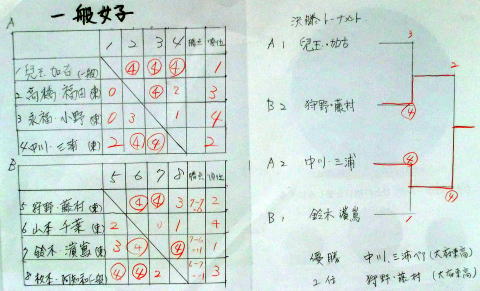 一般女子
A
1 2 3 4 勝点 順位
1 児玉・加古 (一般) ④ ④ ④ 1
2 高橋・福田 (東) 0 ④ 2 3
3 末福・小野 (東) 0 3 1 4
4 中川・三浦 (東) 2 ④ ④ 2
B
5 6 7 8 勝点 順位
5 狩野・藤村 (東) ④ ④ 3 2
6 山本・千葉 (東) 2 0 1 4
7 鈴木・濱嶌 (東) 3 ④ ④ 1
8 ④ ④ 2 3
決勝トーナメント
A1 児玉・加古 3
2
B2 狩野・藤村 ④
A2 中川・三浦 ④
④
B1 鈴木・濱嶌 1
優勝 中川・三浦ペア
2位 狩野・藤村